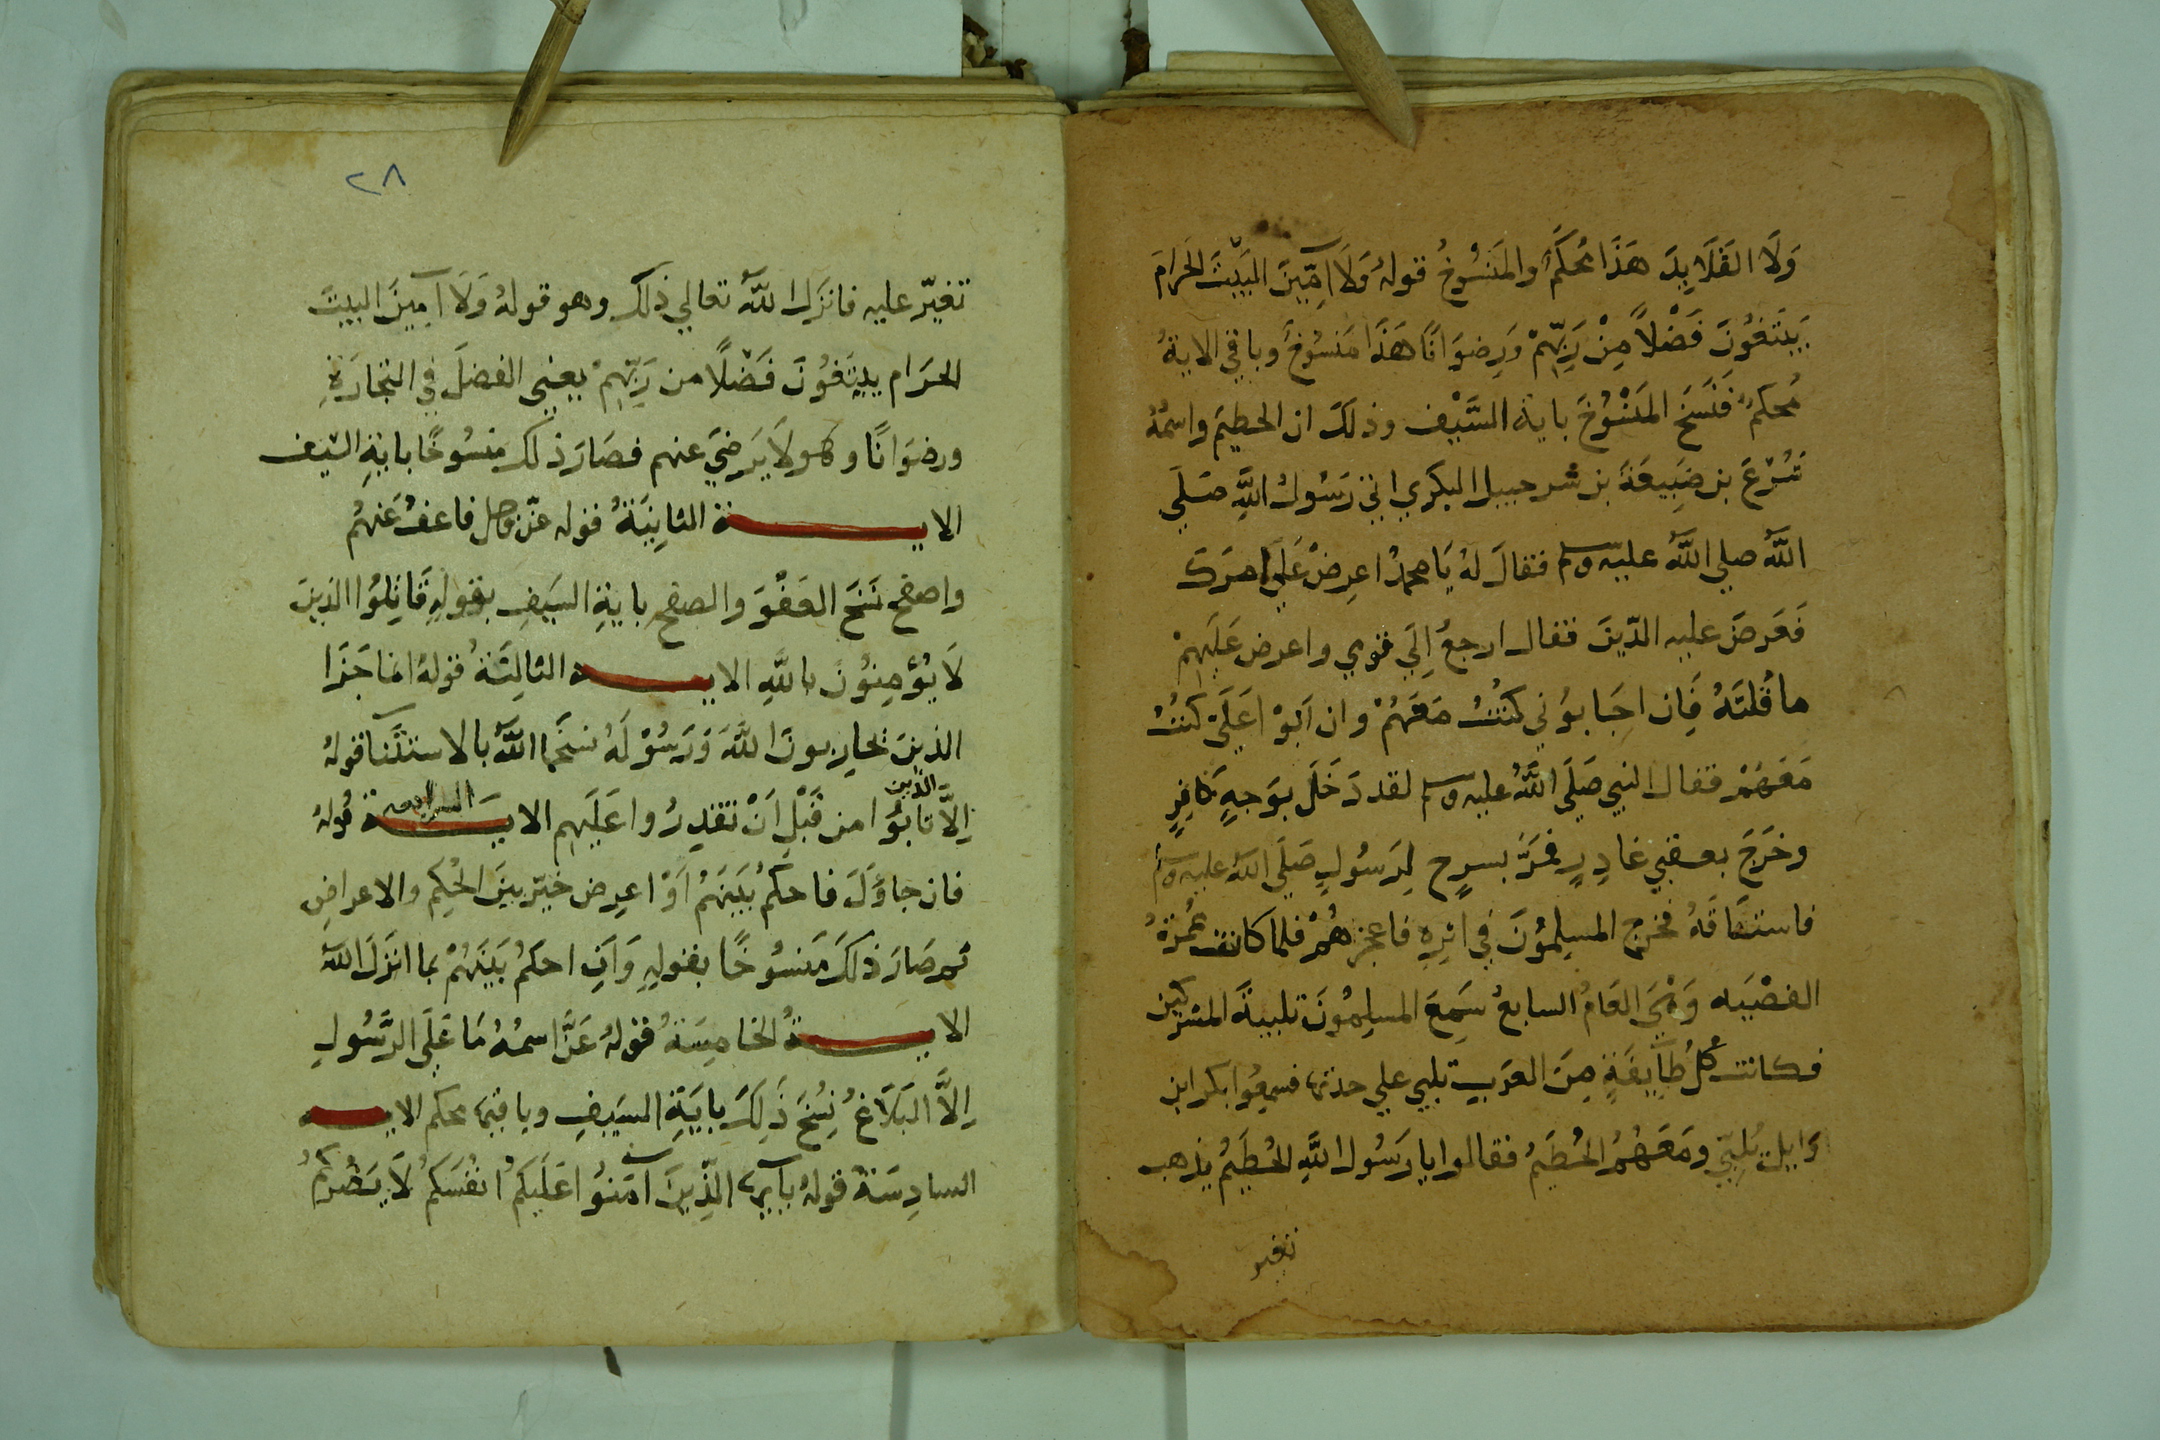 وَلَا القَلَايِدَ هَذَا مُحكَمٌ والمَنسُوخُ قولهُ وَلَا آمِّينَ البَيْتَ الحَرامَ
يَبتَغُونَ فَضْلاً مِنْ رَبِّهِمْ وَرِضوَانًا هَذَا مَنسُوخٌ وباقي الايةُ
مُحكمٌ فَنَسَخَ المَنْسُوخَ باية السَّيْف وذلكَ ان الحطيمَ واسمُهُ
شُرَيحَ بن ضَبِيعَةَ بن شرحبيل البكري اتى رَسُولَ اللَّهِ صَلَى
اللّه صلي اللّه عليه وسلم فقالَ لهُ يَا محمدُ اعرِضْ عَلَيَّ امرَكَ
فَعَرضَ عليه الدّينَ فقال ارجعُ اِلَي قومي واعرض عَلَيهِمْ
ما قُلتَهُ فَاِن اجَابوُني كنتُ مَعَهُمْ وان اَبَوْا عَلَيَّ كنتُ
مَعَهُمْ فقال النبي صَلَي اللَّهُ عليه وسلم لقد دَخَلَ بوَجهِ كَافِرٍ
وخَرَجَ بعقبي غادِرٍ فمَرَّ بسرحٍ لِرَسُولِ صَلَي اللّهُ عليه وسلم
فاستَاقَهُ فخرج المسلِمُونَ في اثرِهِ فاعجزهُمْ فلما كانت عُمرَةُ
القضيَه وَهيَ العَامُ السابعُ سَمِعَ المسلِمُونَ تلبيةَ المشركين
فكانت كُلُّ طَايِفَةٍ مِنَ العَربِ تلبي علي حدتها فسمِعُوا بكر ابن
وَايل تُلبّي ومَعَهُمُ الحُطَمُ فقالوا يا رَسُولَ اللَّهِ الحُطَيمُ يذهب
تغير
٢٨
تغيّر عليه فانزَل اللّهُ تعالي ذلكَ وهو قولهُ وَلَا آمِينَ البيتَ
الحَرَام يبتَغُونَ فَضْلًا من رَبِّهِمْ يعني الفضلَ في التجَارَةِ
ورضوَانًا وهو لَا يَرضيَ عنهم فصَارَ ذلك منسُوخًا بايةِ السّيف
الايـــة الثانِيَةُ قوله عزّ وجل فاعفُ عَنهُم
واصفح نسَخَ العَفْوَ والصفح بايةِ السَيفِ بقولهِ قَاتِلُوا الذينَ
لَا يُؤمِنُونَ باللَّهِ الايـــه الثالِثَةُ قولهُ انما جَزَا
الذينَ يحَارِبونَ اللَّهَ وَرَسُوْلَهُ نسخَها اللَّهُ بالاستثنَا قولهُ
اِلَّا الذين تابُوا من قَبْلِ اَنْ تقدِرُوا عَلَيهِم الايـــة الرابعه قولهُ
فان جاؤكَ فاحكُمْ بَيَنهُمْ اَوْ اعرِض خيّر بينَ الحُكمِ والاعراضِ
ثم صَارَ ذلكَ مَنسُوخًا بقولهِ وَاَنِ احكُمْ بَيَنَهُمْ بما انزَلَ اللّهُ
الايـــةُ الخامِسَةُ قولهُ عَزَّ اسمهُ مَا عَلَى الرَّسُولِ
اِلَّا البَلَاغُ نُسِخَ ذَلِكَ بايَةِ السَيفِ وباقيها محكم الايـــه
السادِسَةُ قولهُ يآيها الذِّينَ آمَنوُا عَلَيكمُ انفُسَكمُ لَا يَضُرُكُمُ